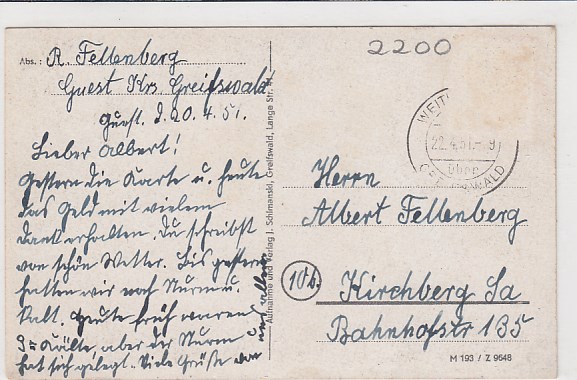 2200
Abs.: R. Fellenberg
Guest Krs Greifswald
Guest. d. 20.4.51.
Lieber Albert!
Gestern die Karte u. heute
das Geld mit vielem
Dank erhalten. Du schreibst
von schön Wetter. Bis gestern
hatten wir noch Sturm u.
Kalt. Heute früh waren
3° Kälte, aber der Sturm
hat sich gelegt. Viele Grüße von
uns allen
Aufnahme und Verlag J. Schimanski, Greifswald, Lange Str.
22.4.51.-9
über
GREIFSWALD
Herrn
Albert Fellenberg
10b
Kirchberg Sa
Bahnhofstr 135
M 193 / Z 9648